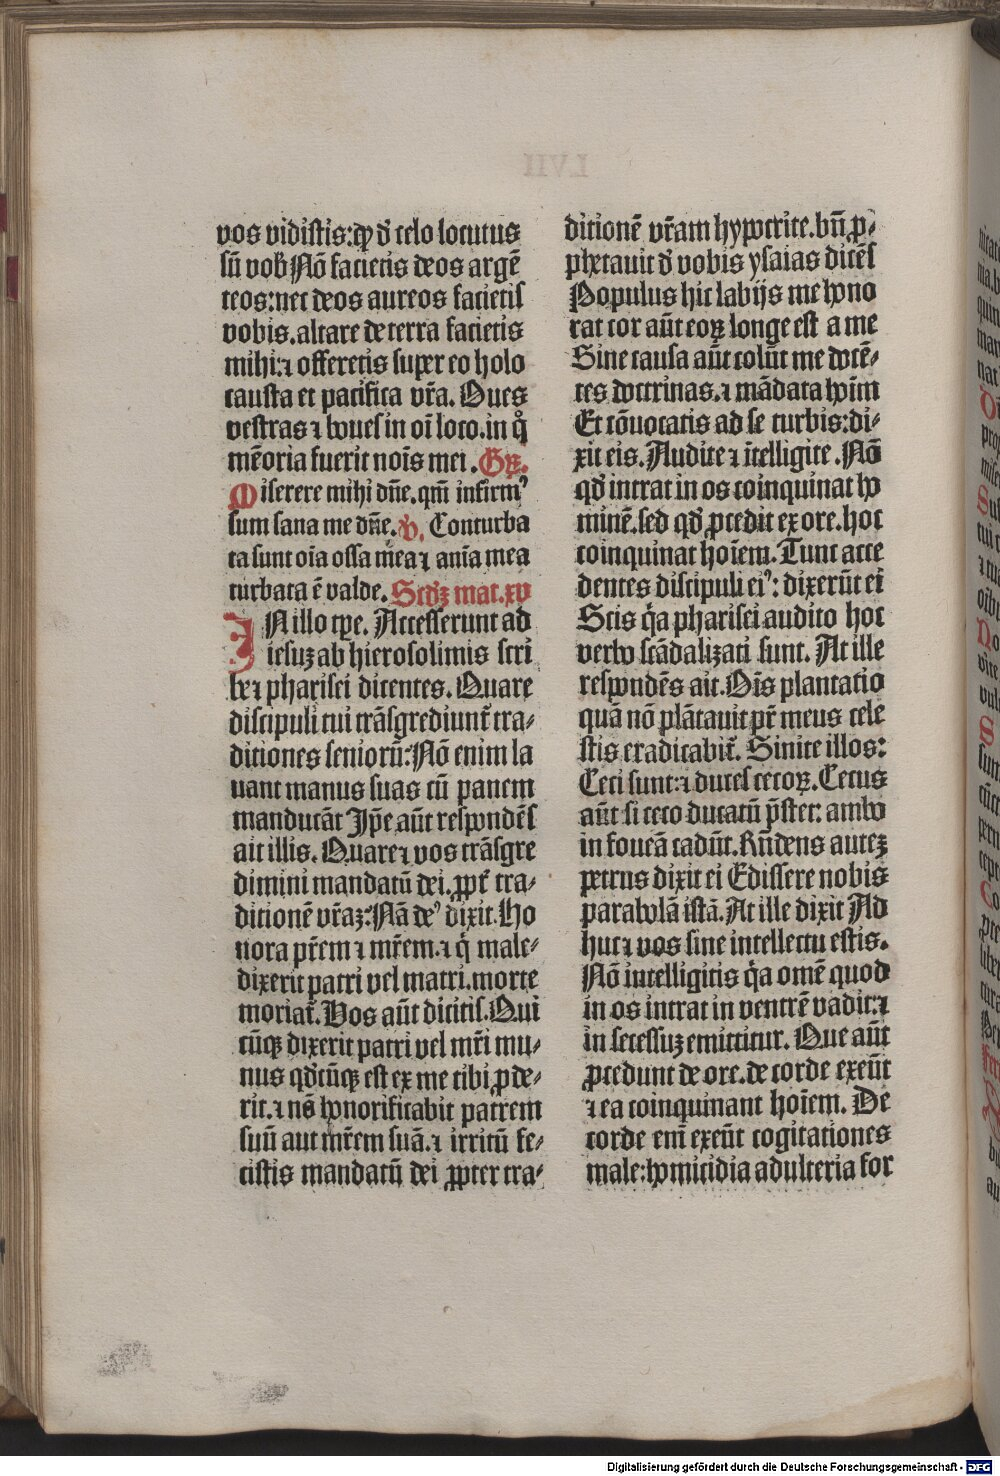 vos vidistis: qꝫ đ celo locutus
sū vob Nō facietis deos argē
teos: nec deos aureos facietis
vobis. altare de terra facietis
mihi: ⁊ offeretis super eo holo
causta et pacifica vr̄a. Oues
vestras ⁊ boues in oī loco. in q̊
mēoria fuerit noīs mei. Gꝝ.
Miserere mihi dn̄e. qm̄ infirmꝰ
sum sana me dn̄e. v̄. Conturba
ta sunt oīa ossa mea ⁊ anīa mea
turbata ē valde. Scd̄ꝫ mat. xv
IN illo tp̄e. Accesserunt ad
iesuꝫ ab hierosolimis scri
be ⁊ pharisei dicentes. Quare
discipuli tui trāsgrediunt᷑ tra-
ditiones seniorū: Nō enim la
uant manus suas cū panem
manducāt Ip̄e aūt respondēs
ait illis. Quare ⁊ vos trāsgre
dimini mandatū dei. ꝓpt᷑ tra-
ditionē vr̄aꝫ: Nā deꝰ dixit. Ho
nora pr̄em ⁊ mr̄em. ⁊ q̇ male-
dixerit patri vel matri. morte
moriat᷑. Vos aūt dicitis. Qui
cūqꝫ dixerit patri vel mr̄i mu-
nus qđcūqꝫ est ex me tibi ꝓde-
rit. ⁊ nō honorificabit patrem
suū aut mr̄em suā. ⁊ irritū fe-
cistis mandatū dei ꝓpter tra-
ditionē vr̄am hypocrite. bn̄ ꝓ-
phetauit đ vobis ysaias dicēs
Populus hic labijs me hono
rat cor aūt eoꝝ longe est a me
Sine causa aūt colūt me docē-
tes doctrinas. ⁊ mādata hoīm
Et cōuocatis ad se turbis: di-
xit eis. Audite ⁊ ītelligite. Nō
qđ intrat in os coinquinat ho
minē. sed qđ ꝓcedit ex ore. hoc
coinquinat hoīem. Tunc acce
dentes discipuli eiꝰ: dixerūt ei
Scis q̄a pharisei audito hoc
verbo scādalizati sunt. At ille
respondēs ait. Oīs plantatio
quā nō plātauit pr̄ meus cele
stis eradicabit᷑. Sinite illos:
Ceci sunt: ⁊ duces cecoꝝ. Cecus
aūt si ceco ducatū p̄stet: ambo
in foueā cadūt. Rn̄dens auteꝫ
petrus dixit ei Edissere nobis
parabolā istā. At ille dixit Ad
huc ⁊ vos sine intellectu estis.
Nō intelligitis q̄a omē quod
in os intrat in ventrē vadit: ⁊
in secessuꝫ emittitur. Que aūt
ꝓcedunt de ore. de corde exeūt
⁊ ea coinquinant hoīem. De
corde enī exeūt cogitationes
male: homicidia adulteria for
Digitalisierung gefördert durch die Deutsche Forschungsgemeinschaft - DFG